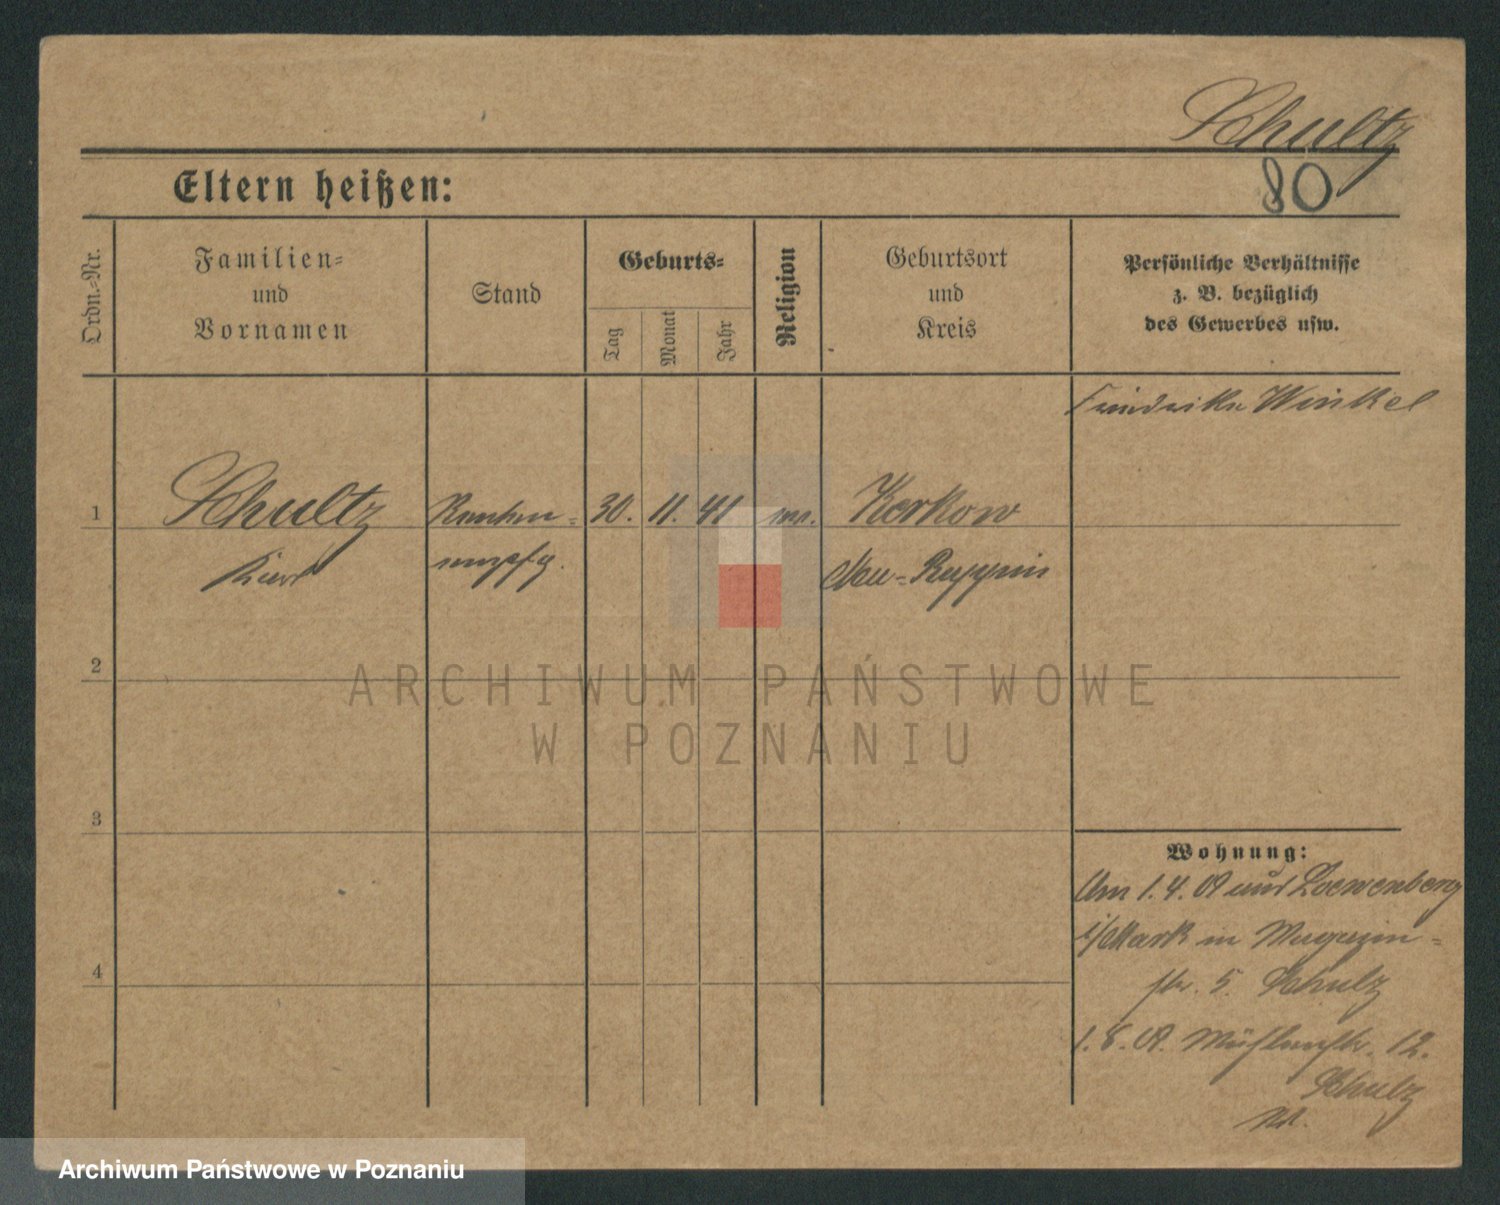 Schultz
80
Eltern heißen:
Ordn.-Nr.
Familien-
und
Vornamen
Stand
Geburts-
Tag
Monat
Jahr
Religion
Geburtsort
und
Kreis
Persönliche Verhältnisse
z. B. bezüglich
des Gewerbes usw.
Friederike Winkel
1
Schultz
Renten-
30. 11. 41
Kerkow
empfg.
Neu-Ruppin
2
ARCHIWUM PAŃSTWOWE
W POZNANIU
3
Wohnung:
Am 1.4.09 aus Loewenberg
i/Mark in Magazin-
str. 5. Schulz
4
1.8.09. Mühlenstr. 12.
Schulz
Archiwum Państwowe w Poznaniu